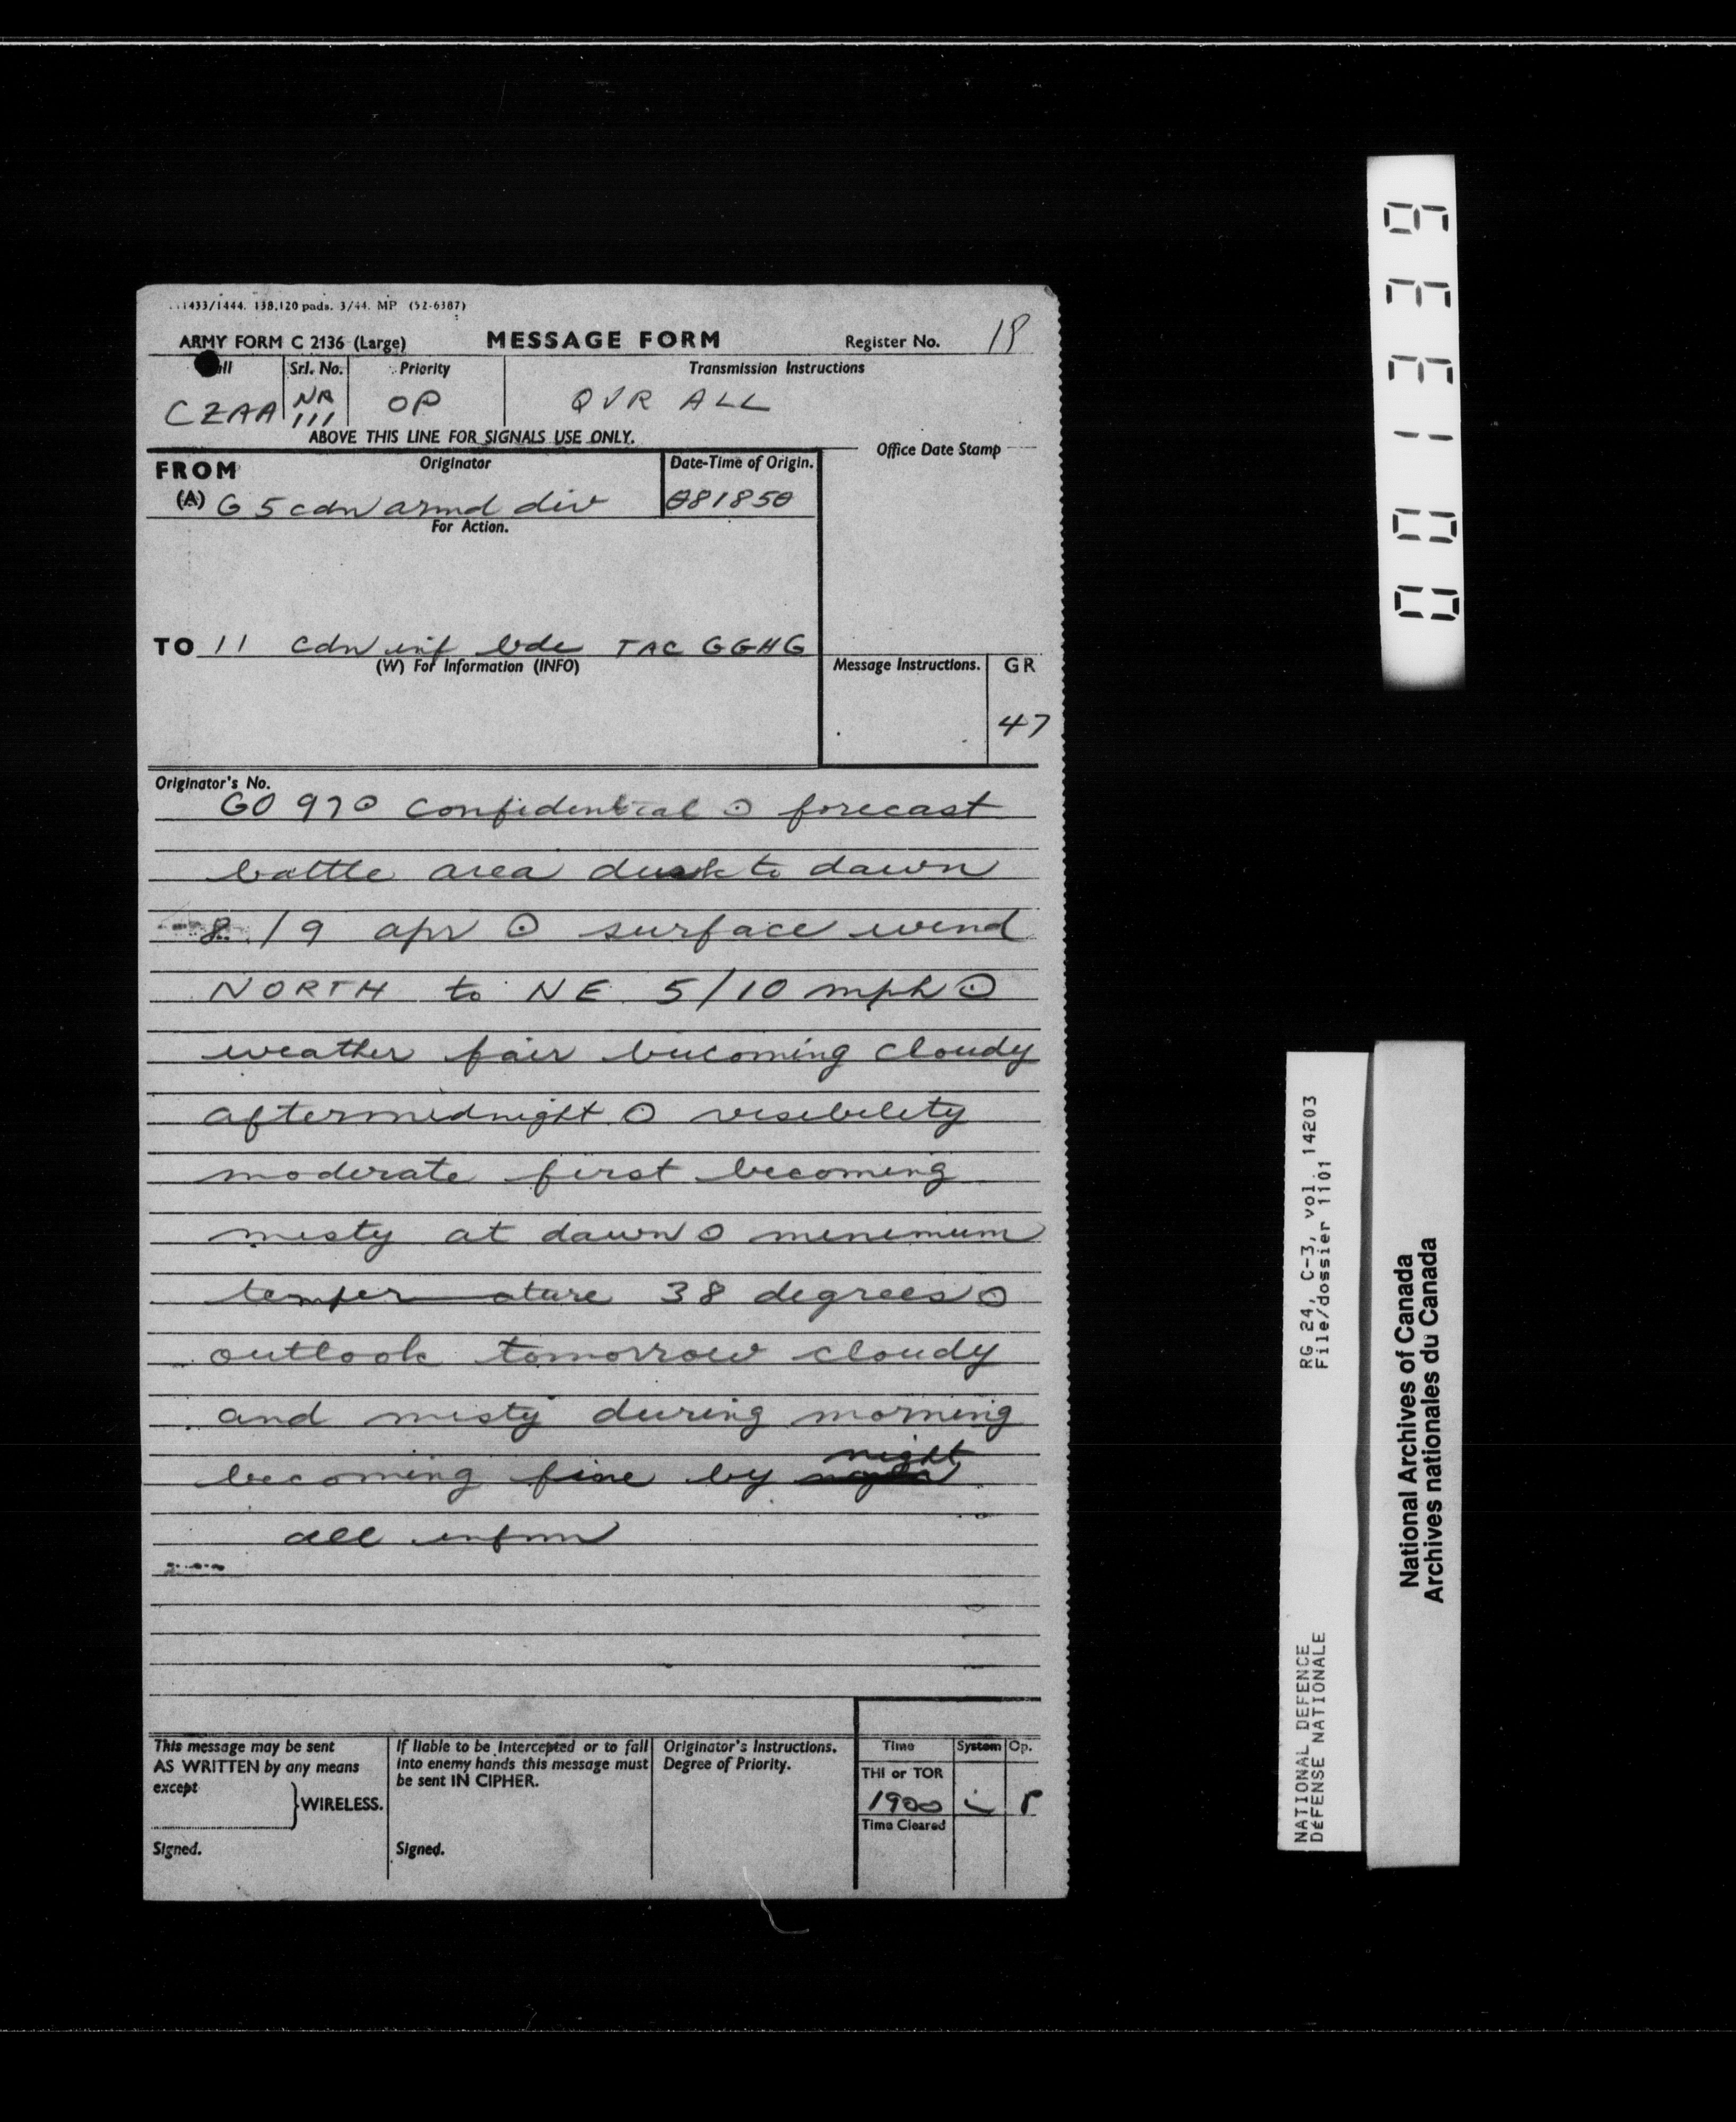 1433/1444. 138,120 pads. 3/44. MP (52-6387)
ARMY FORM C 2136 (Large) MESSAGE FORM Register No. 18
Call Srl. No. Priority Transmission Instructions
CZAA NR 111 OP QVR ALL
ABOVE THIS LINE FOR SIGNALS USE ONLY.
Office Date Stamp
FROM Originator Date-Time of Origin.
(A) G 5 cdn armd div 081850
For Action.
TO 11 cdn inf bde TAC GGHG
(W) For Information (INFO) Message Instructions. GR
47
Originator's No.
GO 97 ⊙ confidential ⊙ forecast
battle area dusk to dawn
8 / 9 apr ⊙ surface wind
NORTH to NE 5/10 mph ⊙
weather fair becoming cloudy
aftermidnight ⊙ visibility
moderate first becoming
misty at dawn ⊙ minimum
temper—ature 38 degrees ⊙
outlook tomorrow cloudy
and misty during morning
becoming fine by night
all infm
This message may be sent
AS WRITTEN by any means
except
WIRELESS.
Signed.
If liable to be intercepted or to fall
into enemy hands this message must
be sent IN CIPHER.
Signed.
Originator's Instructions.
Degree of Priority.
Time System Op.
THI or TOR
1900
Time Cleared
0 0 1 3 3 9
RG 24, C-3, vol. 14203
File/dossier 1101
NATIONAL DEFENCE
DÉFENSE NATIONALE
National Archives of Canada
Archives nationales du Canada